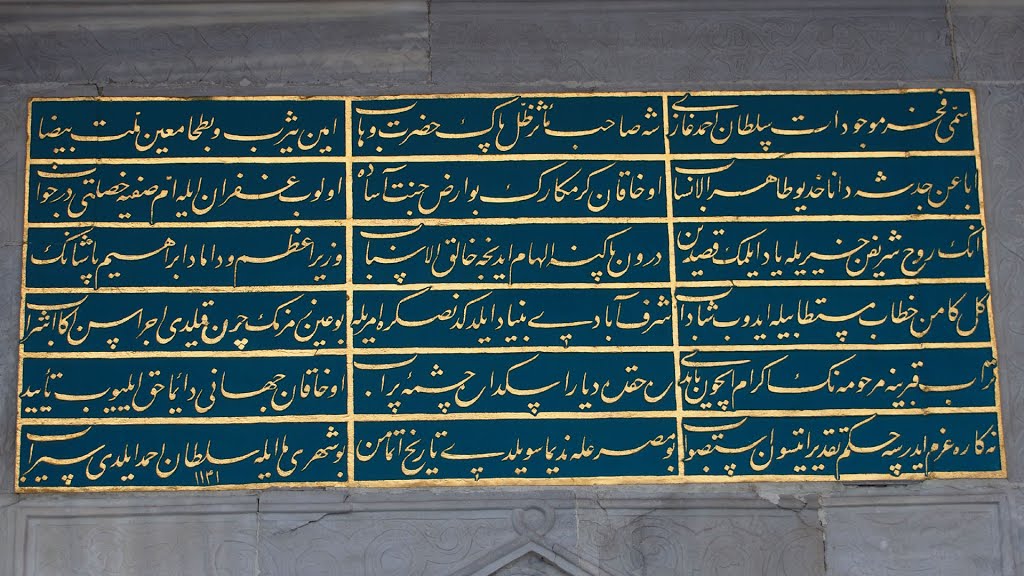 سمی فخر موجودات سلطان احمد غازی
شه صاحب مآثر ظل پاک حضرت وهاب
امین یثرب و بطحا معین ملت بیضا
ابا عن جد شه دانا خدیو طاهر الانساب
او خاقان کرمکارک بو ارض جنت آساده
اولوب غفران ایله ام صفیه خصلتی در خواب
انک روح شریفن خیریله یاد ایلمک قصدین
درون پاکینه الهام ایدیجه خالق الاسباب
وزیر اعظم و داماد ابراهیم پاشانک
کل کامن خطاب مستطابیله ایدوب شاداب
شرف آباده بنیاد ایلدکدنصکره امریله
بو عین
قلدی اجراسن کا اشراب
قرینه مرحومه نک اکرام ایچون
حقدن دیار اسکدار چشمهٔ پر آب
او خاقان جهانی دائما حق ایلیوب تأیید
نه کاره عزم ایدرسه حکم تقدیر ایتسون استصواب
بو مصرعله ندیما سویلدی تاریخ اتمامن
بو شهری ما ایله سلطان احمد ایلدی سیراب
١١٤١